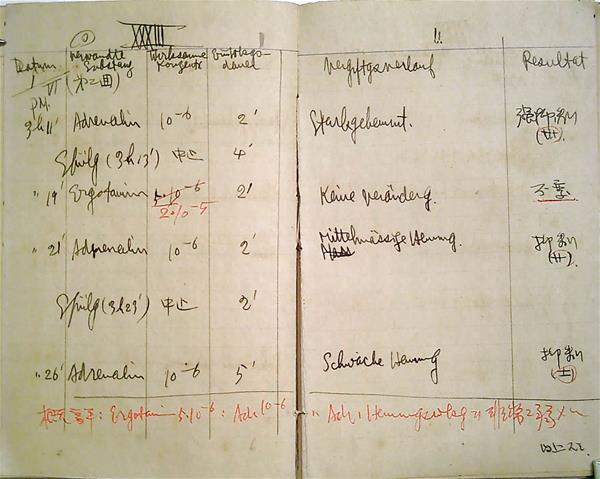 XXXIII
Datum Verwandte Substanz Wirksame Konzentr. Einwirkgs-dauer
II. Vergiftgsverlauf Resultat
I/VI (第二回)
P.M.
3h11' Adrenalin 10⁻⁶ 2' Stark gehemmt. 強抑制 (卅).
Spülg (3h13') 中止 4'
" 19' Ergotamin 5·10⁻⁶ 2·10⁻5 2' Keine Veränderg. 不変
" 21' Adrenalin 10⁻⁶ 2' Mittelmässige Hemmg. 抑制 (廾).
Spülg (3h23') 中止 2'
" 26' Adrenalin 10⁻⁶ 5' Schwache Hemmung 抑制 (±)
: Ergotamin 5·10⁻⁶ : Adr 10⁻⁶ " Adr. Hemmungs